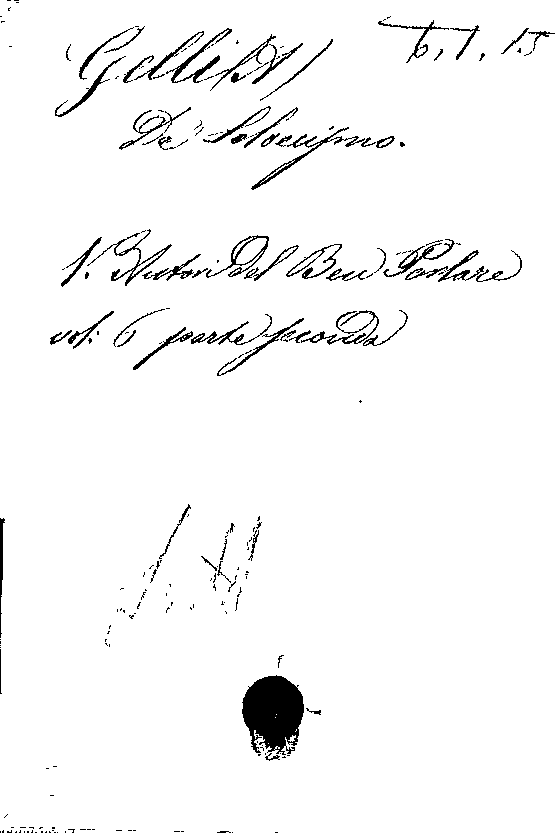 Gelli (A) 6.1.15
De' Solvecismo.
V. Autori Del Ben Parlare
vol: 6 parte seconda